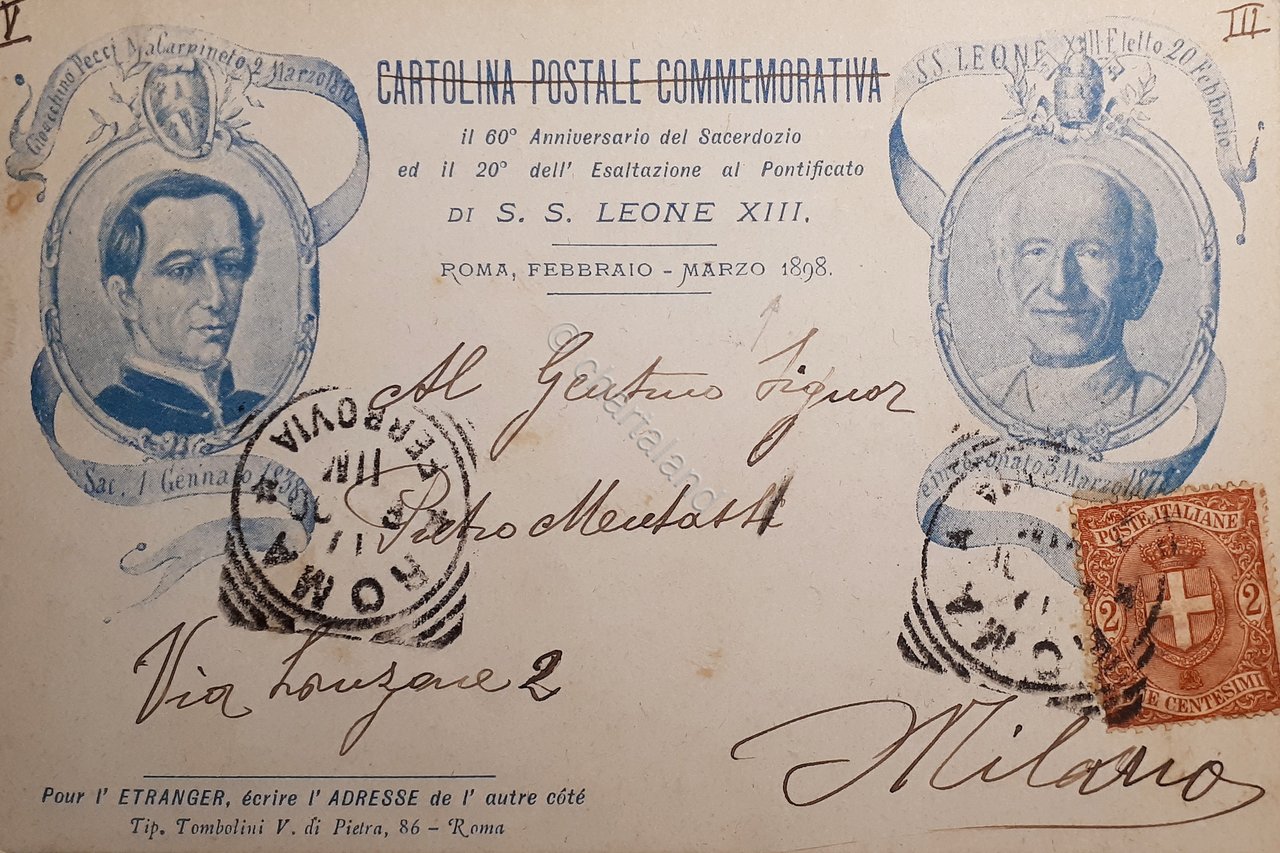 V
III
Gioacchino Pecci N. a Carpineto 2 Marzo 1810
S.S. LEONE XIII Eletto 20 Febbraio
CARTOLINA POSTALE COMMEMORATIVA
il 60° Anniversario del Sacerdozio
ed il 20° dell' Esaltazione al Pontificato
DI S. S. LEONE XIII.
ROMA, FEBBRAIO - MARZO 1898.
Al Gentmo Signor
Pietro Mentasti
Via Lanzone 2
Milano
Sac. 1 Gennaio 1838
Incoronato 3 Marzo 1878
ROMA
FERROVIA
ROMA
POSTE ITALIANE
2 2
E CENTESIMI
© Cartaland
Pour l' ETRANGER, écrire l' ADRESSE de l' autre côté
Tip. Tombolini V. di Pietra, 86 - Roma